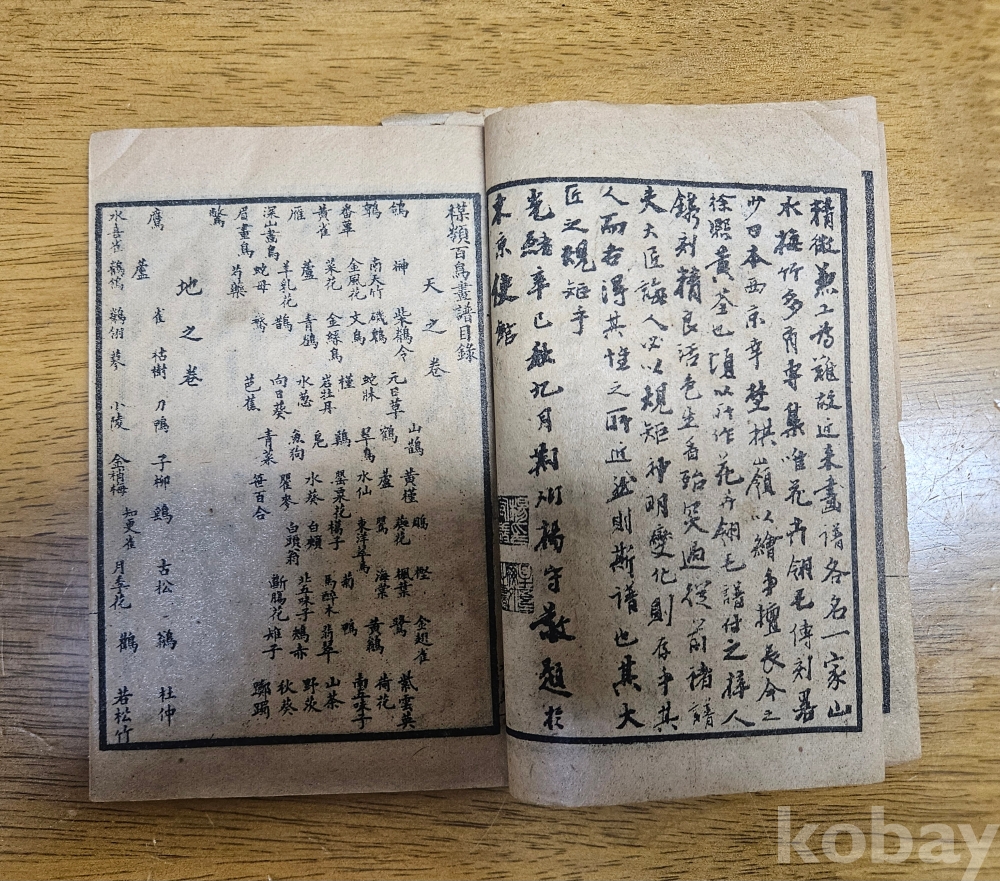 精微兼工為難故近来畫譜各名一家山
水梅竹多有專集唯花卉翎毛傳刻甚
少日本西京幸楳嶺以繪事擅長今之
徐熙黄荃也頃以所作花卉翎毛譜付之梓人
鐫刻精良活色生香殆突過從前諸譜
夫大匠誨人必以規矩神明變化則存乎其
人而各得其性之所近然則斯譜也其大
匠之規矩乎
光緒辛巳秋九月荆州楊守敬題於
東京使館
楳嶺百鳥畫譜目錄
天之卷
鴿 柴鶺令 元日草 山鵲 黄槿 鵙 樫 金翅雀 紫雲英
鶉 南天竹 磯鶺 蛇牀 鶴 蘆 楓葉 鷺 荷花
番蕈 金風花 文鳥 翠鳥 水仙 鴛 東洋草鳥 海棠 黄鶺 南五味子
黄雀 菜花 金綵鳥 槿 鶏 罌菜花 楊子 菊 鴨 山茶
雁 蘆 青鵲 岩牡丹 鳧 水葵 白頰 馬醉木 翡翠 野茨
深山畫鳥 羊乳花 鵲 水葱 魚狗 瞿麥 白頭翁 北五味子 鴆赤 秋葵
眉畫鳥 蛇母 鶩 向日葵 青菜 笹百合 斷腸花 雉子 躑躅
鷲 芍藥 芭蕉
地之卷
鷹 蘆 雀 枯樹 乃鴨 子柳 鶏 古松 鵒 杜仲
水喜雀 鶴鴒 蓼 小陵 金梢梅 知更雀 月季花 鸛 若松竹
kobay